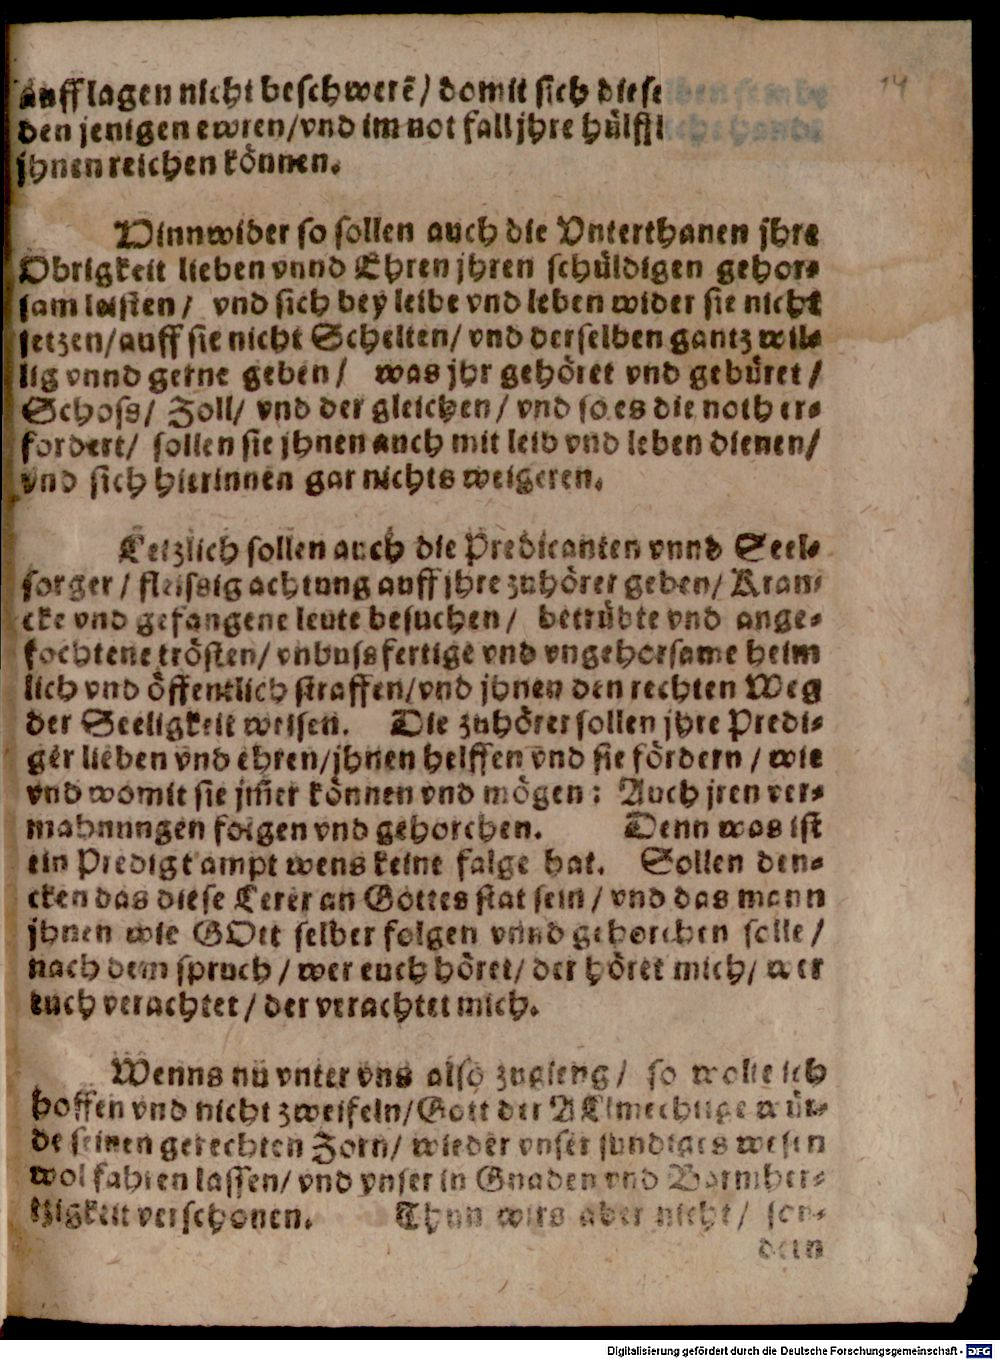 14
aufflagen nicht beschwerẽ / domit sich diese
den jenigen ewren / vnd im not fall jhre hülffl
jhnen reichen können.
Dinnwider so sollen auch die Vnterthanen jhre
Obrigkeit lieben vnnd Ehren jhren schüldigen gehor-
sam leisten / vnd sich bey leibe vnd leben wider sie nicht
setzen / auff sie nicht Schelten / vnd derselben gantz wil-
lig vnnd gerne geben / was jhr gehöret vnd gebüret /
Schoss / Zoll / vnd der gleichen / vnd so es die noth er-
fordert / sollen sie jhnen auch mit leib vnd leben dienen /
vnd sich hierinnen gar nichts weigeren.
Letzlich sollen auch die Predicanten vnnd Seel-
sorger / fleissig achtung auff jhre zuhörer geben / Kran-
cke vnd gefangene leute besuchen / betrübte vnd ange-
fochtene trösten / vnbussfertige vnd vngehorsame heim
lich vnd öffentlich straffen / vnd jhnen den rechten Weg
der Seeligkeit weisen. Die zuhörer sollen jhre Predi-
ger lieben vnd ehren / jhnen helffen vnd sie fördern / wie
vnd womit sie jm̃er können vnd mögen : Auch jren ver-
mahnungen folgen vnd gehorchen. Denn was ist
ein Predigt ampt wens keine falge hat. Sollen den-
cken das diese Lerer an Gottes stat sein / vnd das mann
jhnen wie GOtt selber folgen vnnd gehorchen solle /
nach dem spruch / wer euch höret / der höret mich / wer
euch verachtet / der verachtet mich.
Wenns nu vnter vns also zugieng / so wolte ich
hoffen vnd nicht zweifeln / Gott der ALlmechtige wür-
de seinen gerechten Zorn / wieder vnser sundiges wesen
wol fahren lassen / vnd vnser in Gnaden vnd Barmher-
tzigkeit verschonen. Thun wirs aber nicht / son-
dern
Digitalisierung gefördert durch die Deutsche Forschungsgemeinschaft - DFG